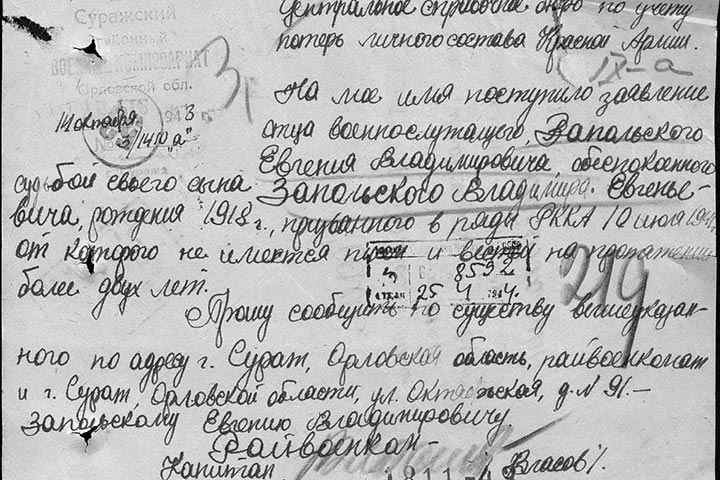 Суражский
районный
ВОЕННЫЙ КОМИССАРИАТ
Орловской обл.
14 октября 1943
3/1410 а"
Центральное справочное бюро по учету
потерь личного состава Красной Армии.
IX-а
На мое имя поступило заявление
отца военнослужащего, Запольского
Евгения Владимировича, обеспокоенного
судьбой своего сына Запольского Владимира Евгенье-
вича, рождения 1918 г., призванного в ряды РККА 10 июля 1941,
от которого не имеется писем и вестей на протяжении
более двух лет.
8532
25 4 1944.
219
Прошу сообщить по существу вышеуказан-
ного по адресу г. Сураж, Орловская область, райвоенкомат
и г. Сураж, Орловской области, ул. Октябрьская, д. N 91.-
Запольскому Евгению Владимировичу
Райвоенком-
Капитан Власов/.
1811-43